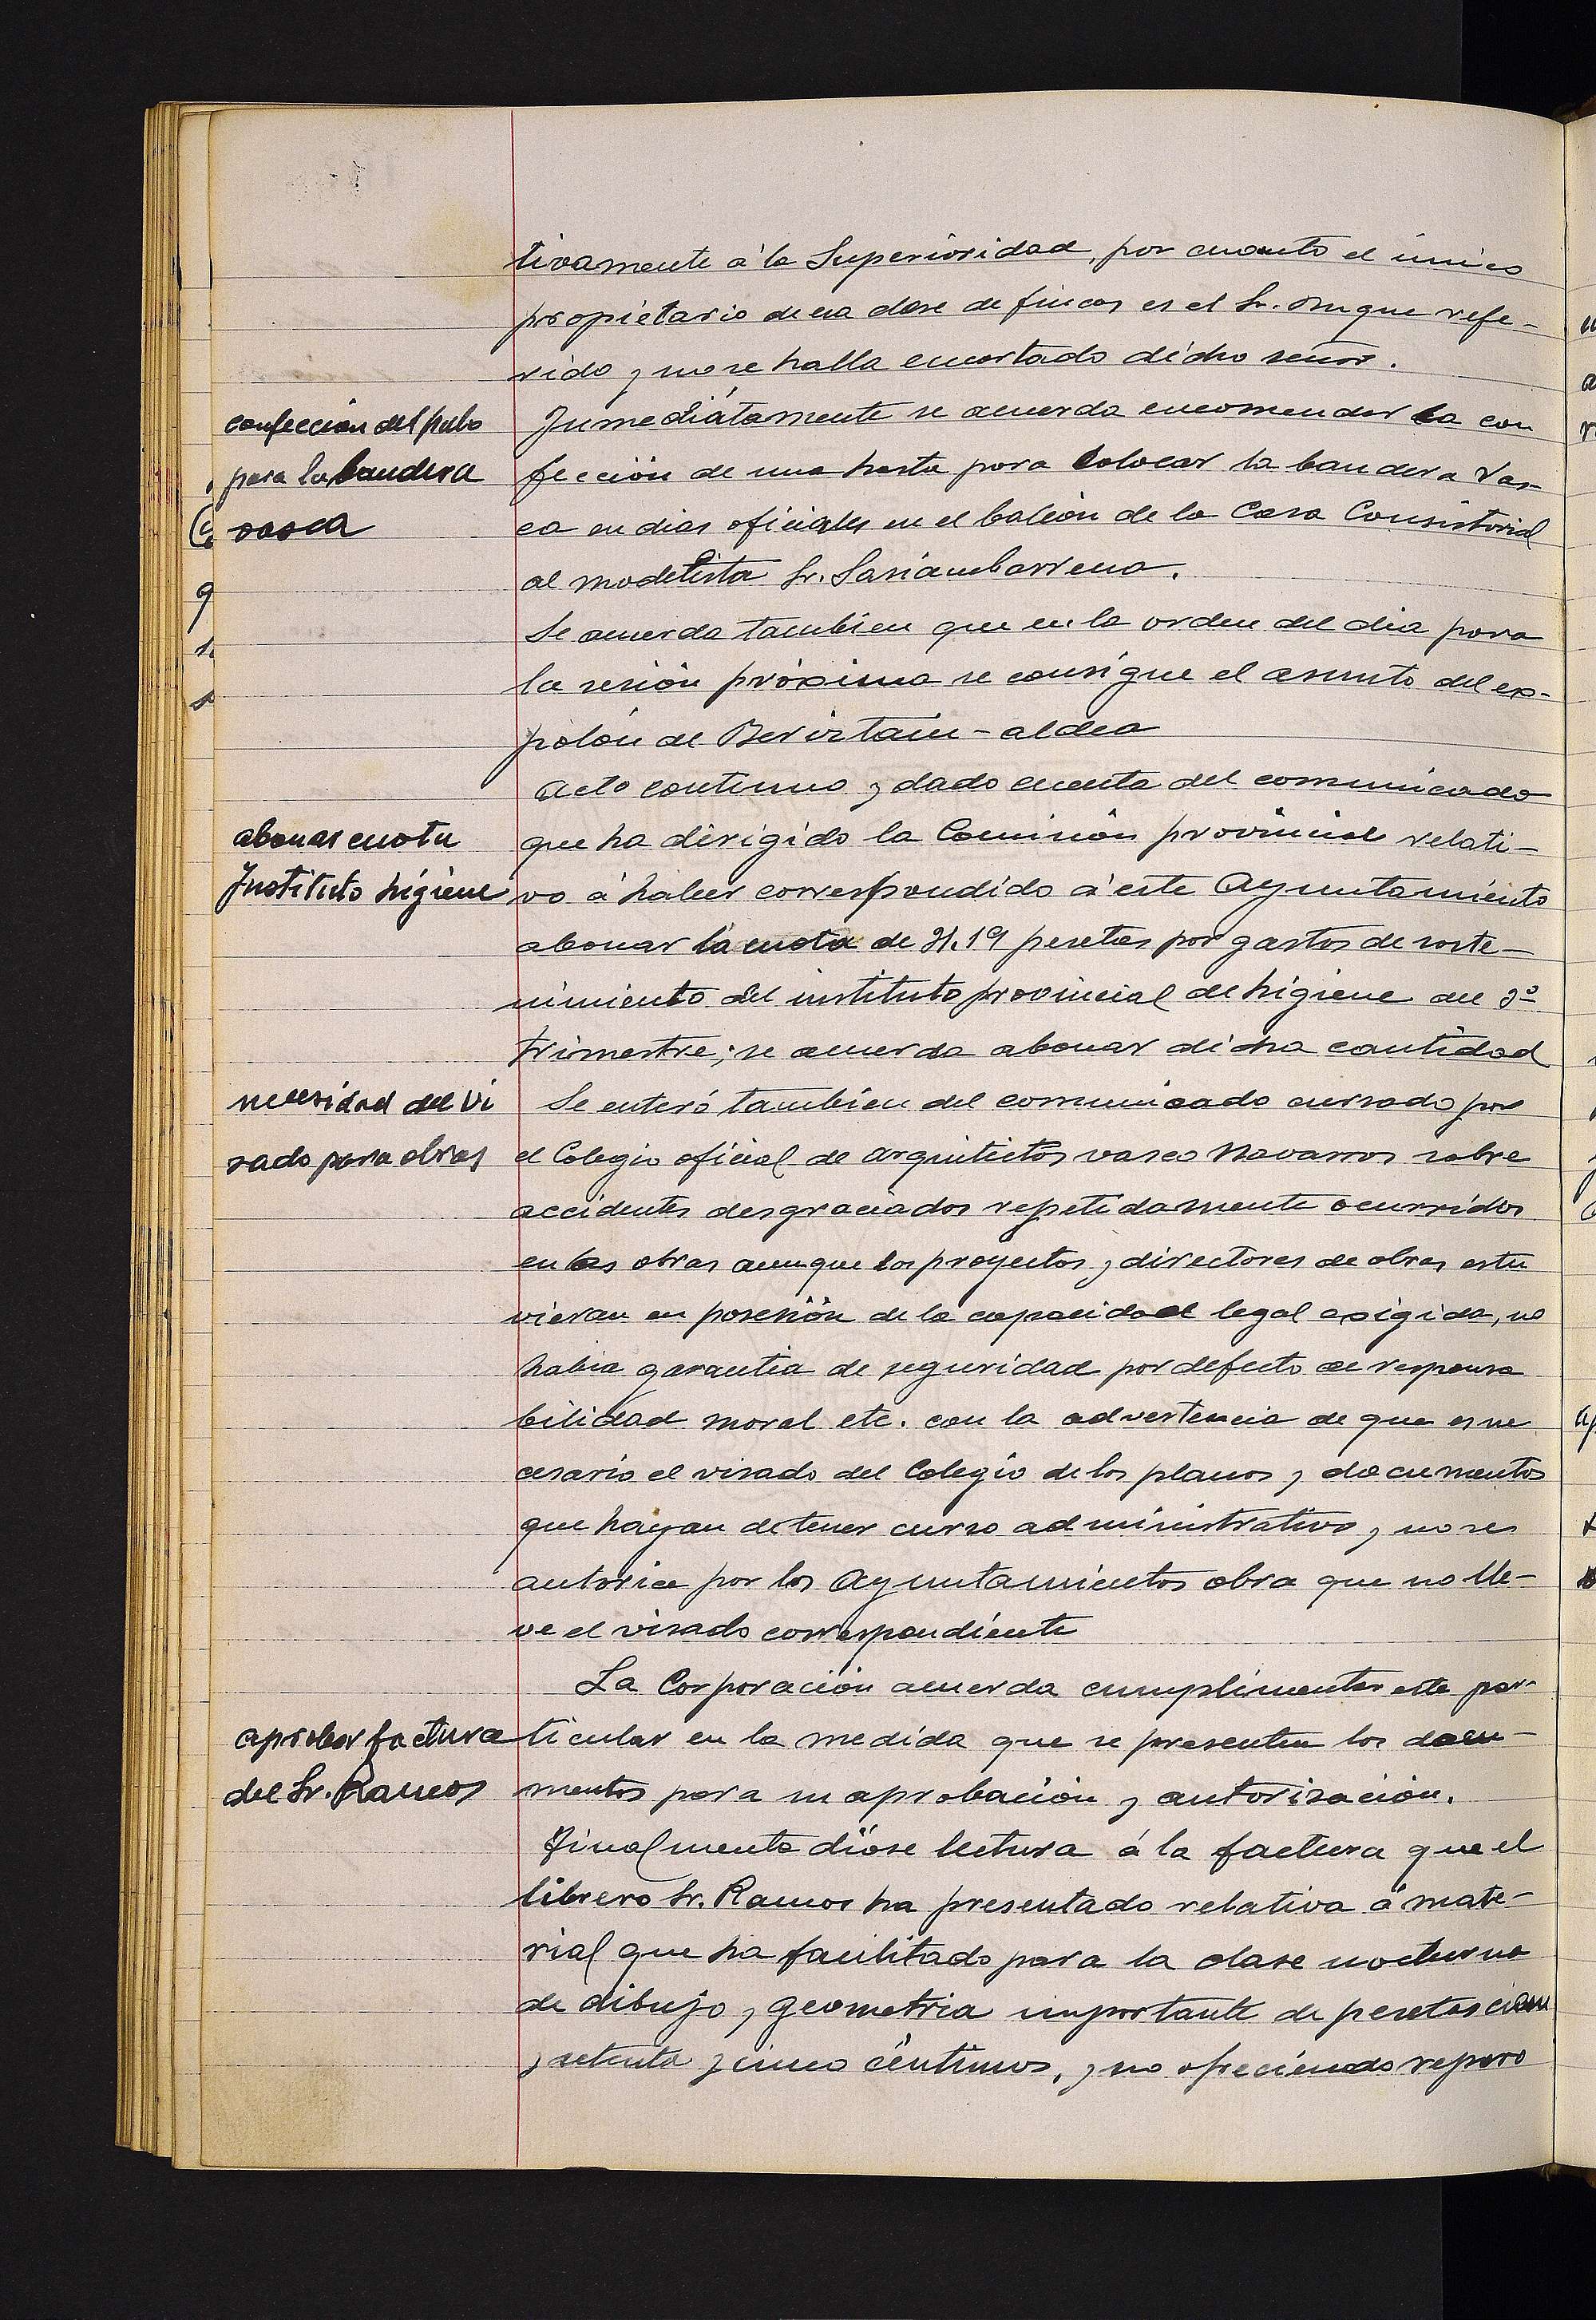 tivamente á la Superioridad, por cuanto el único
propietario de esa clase de fincas es el Sr. Duque refe-
rido y no se halla encartado dicho señor.
confección del palo
para la bandera
vasca
Inmediátamente se acuerda encomendar la con
fección de una hasta para colocar la bandera Vas-
ca en dias oficiales en el balcón de la Casa Consistorial
al modelista Sr. Sasiambarrena.
Se acuerda tambien que en la orden del dia para
la sesión próxima se consigne el asunto del es-
polón de aldea
Acto continuo y dado cuenta del comunicado
abonar cuota
Instituto higiene
que ha dirigido la Comisión provincial relati-
vo á haber correspondido á este Ayuntamiento
abonar la cuota de 31.19 pesetas por gastos de soste-
nimiento del instituto provincial de higiene del 3º
trimestre; se acuerda abonar dicha cantidad
necesidad del vi
sado para obras
Se enteró tambien del comunicado cursado por
el Colegio oficial de arquitectos vasco Navarros sobre
accidentes desgraciados repetidamente ocurridos
en las obras aunque los proyectos y directores de obras estu
vieran en posesión de la capacidad legal exigida, no
habia garantia de seguridad por defecto de responsa
bilidad moral etc. con la advertencia de que es ne
cesario el visado del Colegio de los planos y documentos
que hayan de tener curso administrativo y no se
autorice por los Ayuntamientos obra que no lle-
ve el visado correspondiente
La Corporación acuerda cumplimentar este par-
aprobar factura
del Sr. Ramos
ticular en la medida que se presenten los docu-
mentos para su aprobación y autorización.
Finalmente dióse lectura á la factura que el
librero Sr. Ramos ha presentado relativa á mate-
rial que ha facilitado para la clase nocturna
de dibujo y geometria importante de pesetas cien
y setenta y cinco céntimos, y no ofreciendo reparo